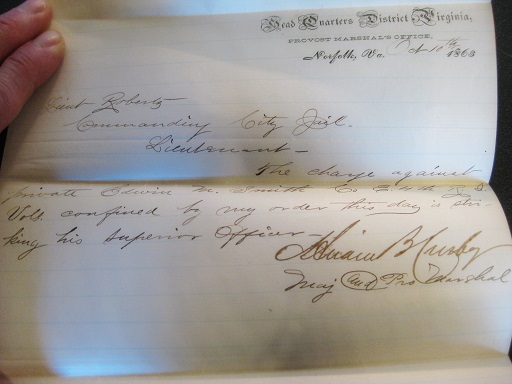 Head Quarters District Virginia,
PROVOST MARSHAL'S OFFICE,
Norfolk, Va. Oct 10th 1863
Lieut Roberts
Commanding City Jail.
Lieutenant —
The charge against
private Edwin M. Smith Co
Vols. confined by my order this day is stri-
king his superior Officer —
Maj and Pro Marshal